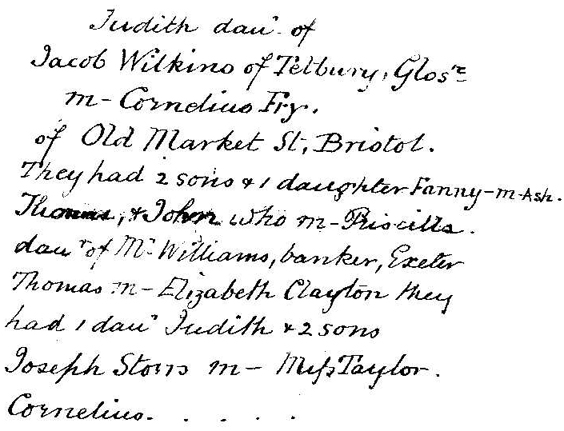 Judith dau. of
Jacob Wilkins of Tetbury, Glosre
m- Cornelius Fry.
of Old Market St, Bristol.
They had 2 sons & 1 daughter Fanny-m-Ash.
Thomas, & John who m- Priscilla.
daur of Mr Williams, banker, Exeter
Thomas m- Elizabeth Clayton they
had 1 daur Judith & 2 sons
Joseph Storrs m- Miss Taylor.
Cornelius. . . . .